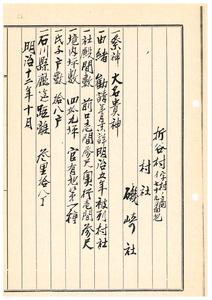 折谷村
村社
磯崎社
一祭神 大名貴神
一由緒 勧請年月不詳明治五年被列村社
一社殿間数 前口壱間参尺奥行壱間参尺
一境内坪数 四拾九坪 官有地第一種
一氏子戸数 拾八戸
一石川県庁迄距離 参里拾八丁
明治十二年十月